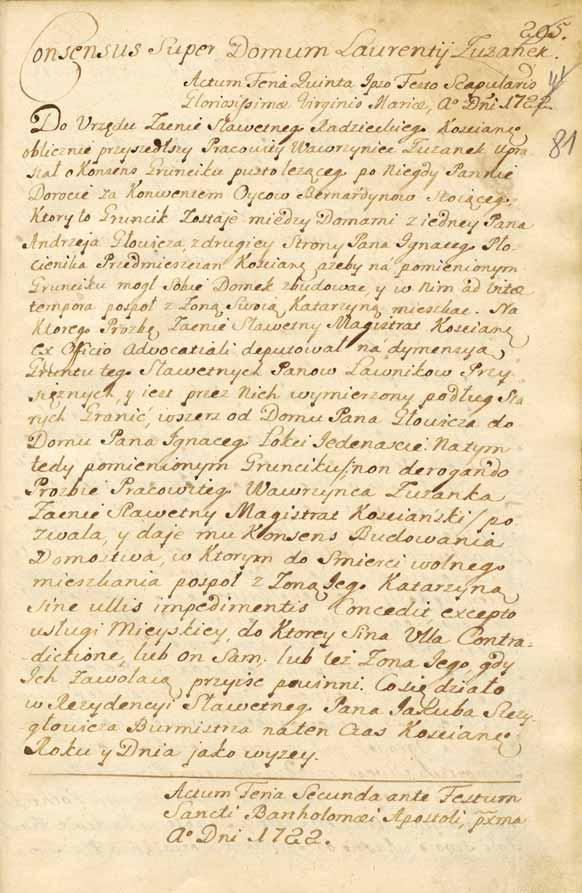 205.
Consensus Super Domum Laurentij Tuzanek.
81
Actum Feria Quinta Ipso Festo Scapularis
Gloriosissimæ Virginis Mariæ, Aº Dni 1722
Do Urzędu Zacnie Sławetneg. Radzieckieg. Kosciane
oblicznie przyszedłszy Pracowity Wawrzyniec Tuzanek upra
szał o Konsens Grunciku pusto lezącego po Niegdy Pannie
Dorocie za Konwentem Oycow Bernardynow Stoiąceg.
Ktory to Gruncik Zostaje między Domami z iedney Pana
Andrzeja Głowicza, z drugiey Strony Pana Ignaceg. Pło
ciennika Przedmieszczan Kosciane, azeby ná pomienionym
Grunciku mogł Sobie Domek zbudowac, y w Nim ad vitæ
tempora pospoł z Zoną Swoią Katarzyną mieszkac. Na
Ktorego Prozbę Zacnie Sławetny Magistrat Kosciane
Ex Officio Advocatiali deputował ná dymensyą
Gruntu teg. Sławetnych Panow Ławnikow Przy-
sięznych, y iest przez Nich wymierzony podług Sta
rych Granić, wszerz od Domu Pana Głowicza do
Domu Pana Ignaceg. Łokci Iedenascie. Na tym
tedy pomienionym Grunciku /: non derogando
Prozbie Pracowiteg. Wawrzynca Tuzanka
Zacnie Sławetny Magistrat Kosciański / po
zwala, y daje mu Konsens Budowania
Domostwa, w Ktorym do Smierci wolnego
mieszkania pospoł z Zoną Jeg. Katarzyną
sine ullis impedimentis Concedit excepto
usługi Mieyskiey, do Ktorey Sina Ulla Contra-
dictione, lub on Sam, lub tez Zona Jego, gdy
Ich Zawołaią przyisc powinni. Co się działo
w Rezydencyi Sławetneg. Pana Jakuba
Burmistrza na ten Czas Kosciane
Roku y Dnia jako wyzey.
Actum Feria Secunda ante Festum
Sancti Bartholomæi Apostoli, pxma
Aº Dni 1722.